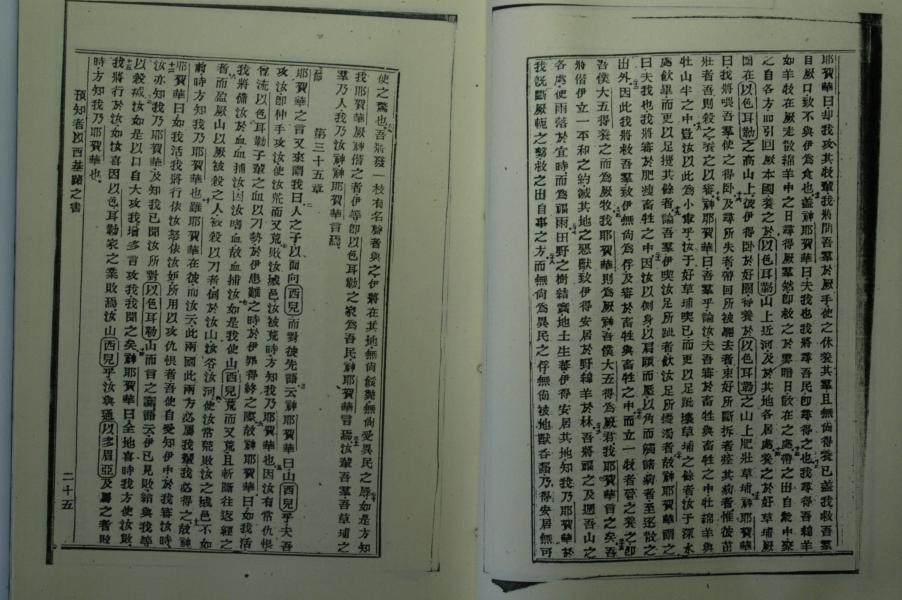 耶賀華曰却我攻其牧輩我將問吾羣於厥手使之休養其羣且無尙得養已蓋我救吾羣
自厥口致不與伊爲食也蓋神耶賀華曰夫我也我將尋吾民即尋之也我尋得吾綿羊
如羊牧在厥走散綿羊中之日尋得厥羣然即救之于雲暗日散在之處帶之出自衆中聚
之自各方而引回厥本國養之於以色耳勒山上近河及于其地各居處養之於好草埔厥
圈在以色耳勒之高山上彼伊得卧於好圈得養於以色耳勒之山上肥壯草埔神耶賀華
曰我將喂吾羣使之得卧及尋所失者帶回所被趕去者束好所斷拆者痊其病者惟彼茁
壯者吾則殺之養之以審神耶賀華曰吾羣乎論汝夫吾審於畜牲與畜牲之中牡綿羊與
牡山羊之中豈汝以此爲小事乎汝于好草埔喫已而更以足跐壞草埔之餘者汝于深水
處飲畢而更以足攪其餘者論吾羣伊喫汝足所跐者飲汝足所攪濁者故神耶賀華謂之
曰夫我也我將審於肥瘦畜牲之中因汝以側身以肩頭而壓以角而觸諸病者至逐散之
出外因此我將救吾羣致伊無尙爲俘及審於畜牲與畜牲之中而立一牧者督之養之即
吾僕大五得養之而爲厥牧我耶賀華則爲厥神吾僕大五得爲厥君我耶賀華言之矣吾
將偕伊立一平和之約滅其地之惡獸致伊得安居於野綿羊於林吾將福之及週吾山之
各處使雨落於宜時而爲福雨田野之樹結實地土生蕃伊得安居其地知我乃耶賀華於
我既斷厥軛之繫救之出自事之方而無尙爲異民之俘無尙被地獸吞齧乃得安居無可
使之驚也吾將發一枝有名聲者與之伊將在其地無尙餒斃無尙受異民之辱如是方知
我耶賀華厥神偕之者伊等即以色耳勒之家爲吾民神耶賀華言焉汝輩吾羣吾草埔之
羣乃人我乃汝神神耶賀華言焉
第三十五章
耶賀華之言又來謂我曰人之子以面向西兒而對彼先語云神耶賀華曰山西兒乎夫吾
攻汝卽伸手攻汝使汝荒而又荒敗汝城邑汝被荒時方知我乃耶賀華也因汝有常仇恨
曾流以色耳勒子輩之血以刀勢於伊患難之時於伊罪得終之際故神耶賀華曰如我活
我將備汝於血血捕汝因汝嗜血故血捕汝如是我使山西兒荒而又荒且斬斷往返經之
者而盈厥山以厥被殺之人被殺以刀者倒於汝山汝谷汝河使汝常荒敗汝之城邑不如
前時方知我乃耶賀華也雖耶賀華在彼而汝云此兩國此兩方必屬我輩我必得之故神
耶賀華曰如我活我將行依汝怒依汝妬所用以攻仇恨者吾使自愛知伊中於我審汝時
汝亦知我乃耶賀華及知我已聞汝所對以色耳勒山而言之讟語云伊已見敗給與我等
以殺滅汝如是以口自大攻我增多言攻我我聞之矣神耶賀華曰全地喜時我方使汝敗
我將行於汝如汝喜因以色耳勒家之業敗焉汝山西兒乎汝與通以多眉亞及屬之者敗
時方知我乃耶賀華也
預知者以西基路之書
二十五